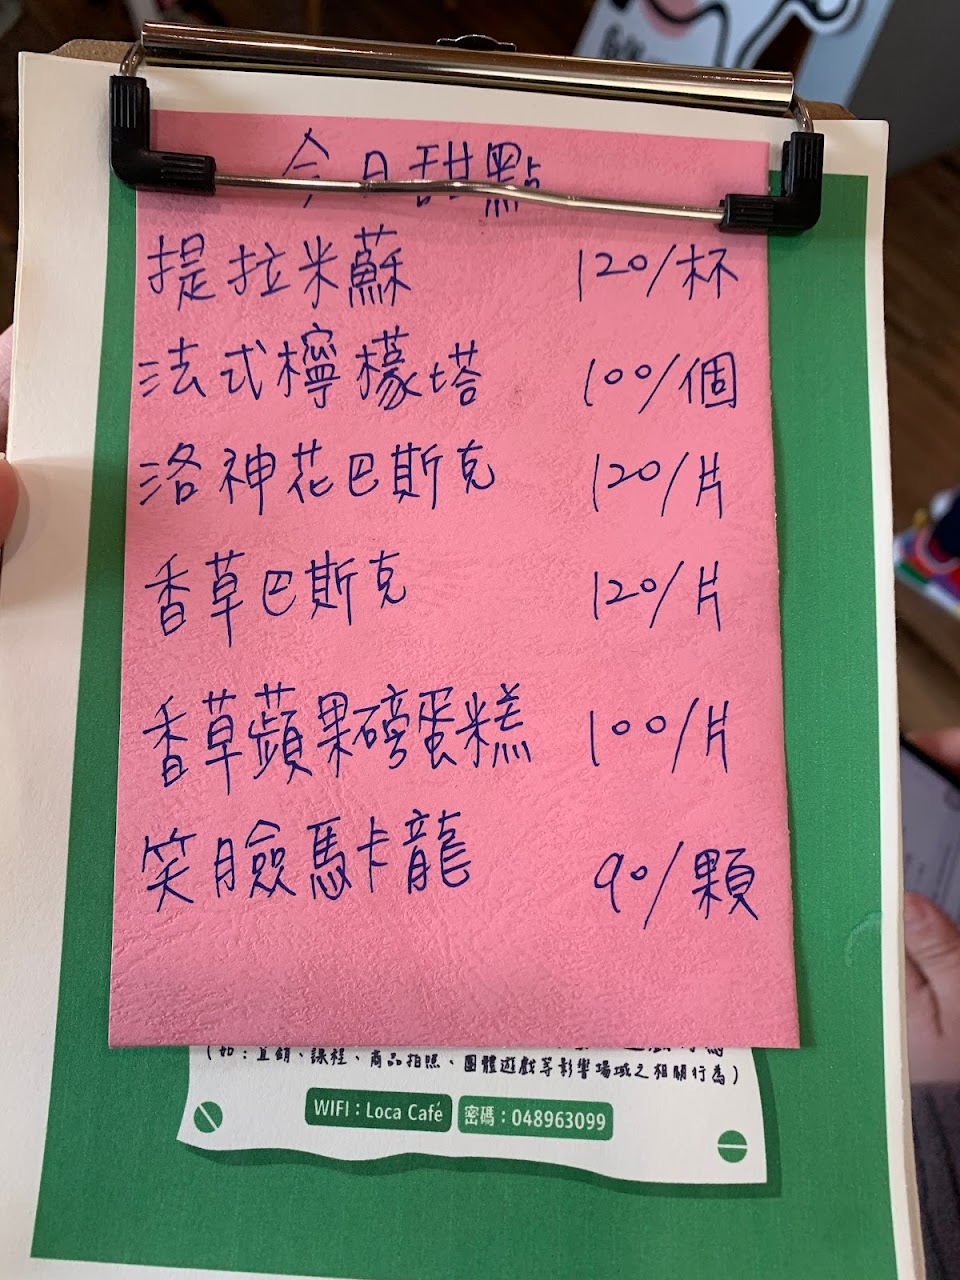 今日甜點
提拉米蘇 120/杯
法式檸檬塔 100/個
洛神花巴斯克 120/片
香草巴斯克 120/片
香草蘋果磅蛋糕 100/片
笑臉馬卡龍 90/顆
(如：直銷、課程、商品拍照、團體遊戲等影響場域之相關行為)
WIFI：Loca Café 密碼：048963099